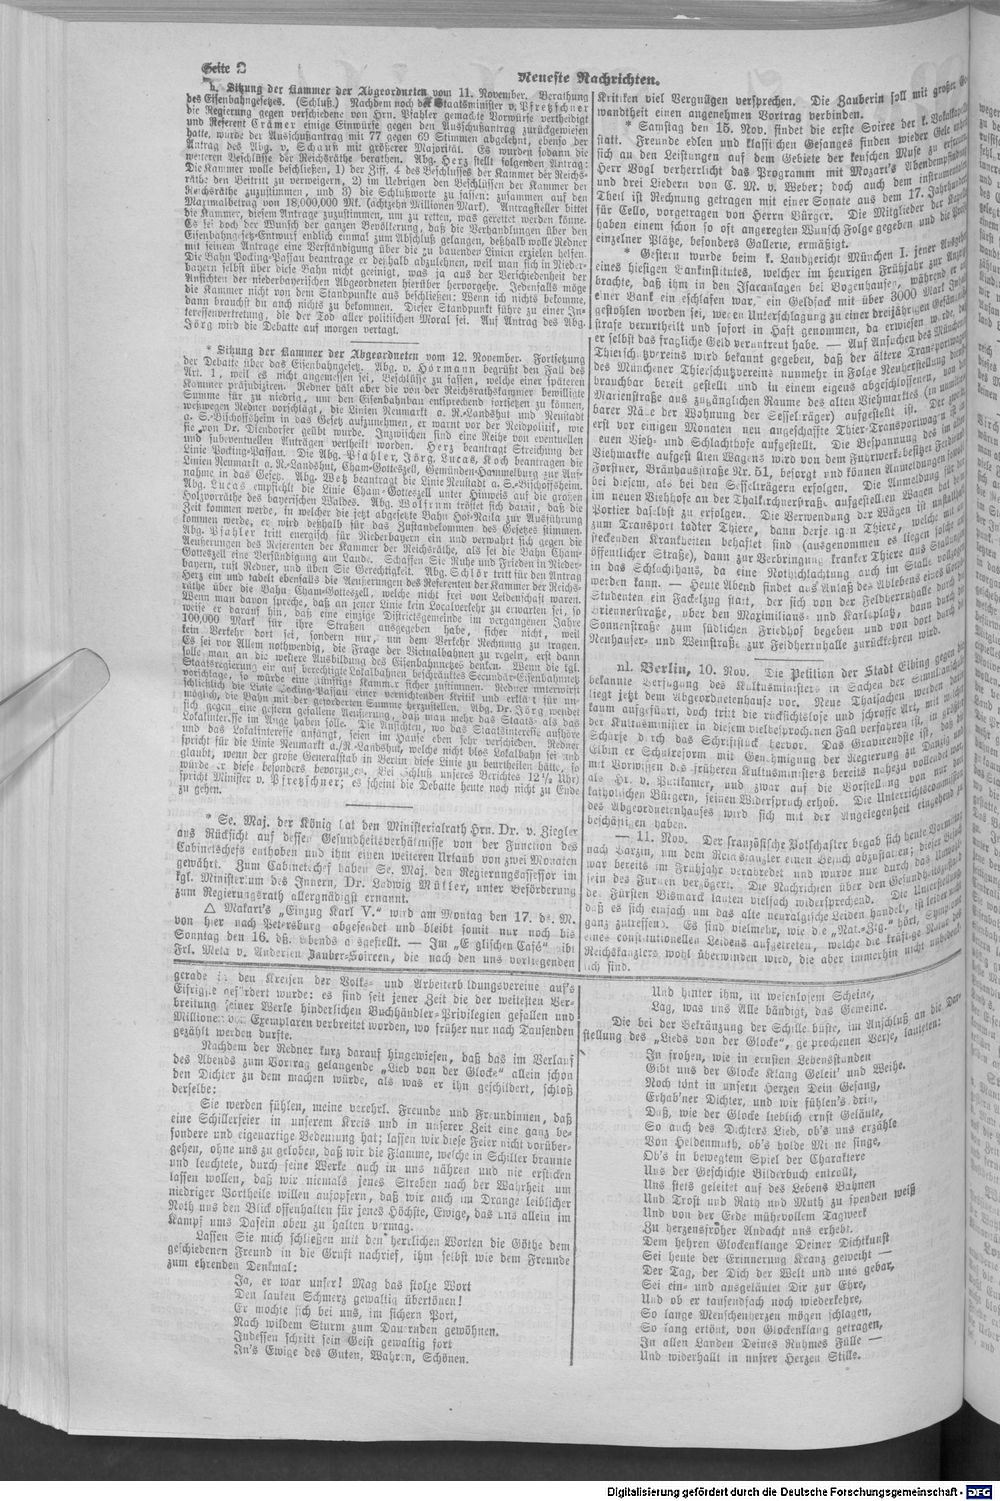 Seite 2
Neueste Nachrichten.
h. Sitzung der Kammer der Abgeordneten vom 11. November. Berathung
des Eisenbahngesetzes. (Schluß.) Nachdem noch der Staatsminister v. Pfretzschner
die Regierung gegen verschiedene von Hrn. Pfahler gemachte Vorwürfe vertheidigt
und Referent Crämer einige Einwürfe gegen den Ausschußantrag zurückgewiesen
hatte, wurde der Ausschußantrag mit 77 gegen 69 Stimmen abgelehnt, ebenso der
Antrag des Abg. v. Schauß mit größerer Majorität. Es wurden sodann die
weiteren Beschlüsse der Reichsräthe berathen. Abg. Herz stellt folgenden Antrag:
Die Kammer wolle beschließen, 1) der Ziff. 4 des Beschlusses der Kammer der Reichs-
räthe den Beitritt zu verweigern, 2) im Uebrigen den Beschlüssen der Kammer der
Reichsräthe zuzustimmen, und 3) die Schlußworte zu fassen: zusammen auf den
Maximalbetrag von 18,000,000 Mk. (achtzehn Millionen Mark). Antragsteller bittet
die Kammer, diesem Antrage zuzustimmen, um zu retten, was gerettet werden könne.
Es sei doch der Wunsch der ganzen Bevölkerung, daß die Verhandlungen über den
Eisenbahngesetz-Entwurf endlich einmal zum Abschluß gelangen, deßhalb wolle Redner
mit seinem Antrage eine Verständigung über die zu bauenden Linien erzielen helfen.
Die Bahn Pocking-Passau beantrage er deßhalb abzulehnen, weil man sich in Nieder-
bayern selbst über diese Bahn nicht geeinigt, was ja aus der Verschiedenheit der
Ansichten der niederbayerischen Abgeordneten hierüber hervorgehe. Jedenfalls möge
die Kammer nicht von dem Standpunkte aus beschließen: Wenn ich nichts bekomme,
dann brauchst du auch nichts zu bekommen. Dieser Standpunkt führe zu einer In-
teressenvertretung, die der Tod aller politischen Moral sei. Auf Antrag des Abg.
Jörg wird die Debatte auf morgen vertagt.
* Sitzung der Kammer der Abgeordneten vom 12. November. Fortsetzung
der Debatte über das Eisenbahngesetz. Abg. v. Hörmann begrüßt den Fall des
Art. 1, weil es nicht angemessen sei, Beschlüsse zu fassen, welche einer späteren
Kammer präjudiziren. Redner hält aber die von der Reichsrathskammer bewilligte
Summe für zu niedrig, um den Eisenbahnbau entsprechend fortsetzen zu können,
weßwegen Redner vorschlägt, die Linien Neumarkt a. R.-Landshut und Neustadt
a. S.-Bischofsheim in das Gesetz aufzunehmen, er warnt vor der Neidpolitik, wie
sie von Dr. Diendorfer geübt wurde. Inzwischen sind eine Reihe von eventuellen
und subeventuellen Anträgen vertheilt worden. Herz beantragt Streichung der
Linie Pocking-Passau. Die Abg. Pfahler, Jörg, Lucas, Koch beantragen die
Linien Neumarkt a. R.-Landshut, Cham-Gotteszell, Gemünden-Hammelburg zur Auf-
nahme in das Gesetz. Abg. Wetz beantragt die Linie Neustadt a. S.-Bischofsheim.
Abg. Lucas empfiehlt die Linie Cham-Gotteszell unter Hinweis auf die großen
Holzvorräthe des bayerischen Waldes. Abg. Wolfrum tröstet sich damit, daß die
Zeit kommen werde, in welcher die jetzt abgesetzte Bahn Hof-Naila zur Ausführung
kommen werde, er wird deßhalb für das Zustandekommen des Gesetzes stimmen.
Abg. Pfahler tritt energisch für Niederbayern ein und verwahrt sich gegen die
Aeußerungen des Referenten der Kammer der Reichsräthe, als sei die Bahn Cham-
Gotteszell eine Versündigung am Lande. Schaffen Sie Ruhe und Frieden in Nieder-
bayern, ruft Redner, und üben Sie Gerechtigkeit. Abg. Schlör tritt für den Antrag
Herz ein und tadelt ebenfalls die Aeußerungen des Referenten der Kammer der Reichs-
räthe über die Bahn Cham-Gotteszell, welche nicht frei von Leidenschaft waren.
Wenn man davon spreche, daß an jener Linie kein Localverkehr zu erwarten sei, so
weise er darauf hin, daß eine einzige Districtsgemeinde im vergangenen Jahre
100,000 Mark für ihre Straßen ausgegeben habe, sicher nicht, weil
kein Verkehr dort sei, sondern nur, um dem Verkehr Rechnung zu tragen.
Es sei vor Allem nothwendig, die Frage der Vicinalbahnen zu regeln, erst dann
solle man an die weitere Ausbildung des Eisenbahnnetzes denken. Wenn die kgl.
Staatsregierung ein auf berechtigte Lokalbahnen beschränktes Secundär-Eisenbahnnetz
vorschlage, so würde eine künftige Kammer sicher zustimmen. Redner unterwirft
schließlich die Linie Pocking-Passau einer vernichtenden Kritik und erklärt für un-
möglich, die Bahn mit der geforderten Summe herzustellen. Abg. Dr. Jörg wendet
sich gegen eine gestern gefallene Aeußerung, daß man mehr das Staats- als das
Lokalinteresse im Auge haben solle. Die Ansichten, wo das Staatsinteresse aufhöre
und das Lokalinteresse anfängt, seien im Hause eben sehr verschieden. Redner
spricht für die Linie Neumarkt a./R.-Landshut, welche nicht blos Lokalbahn sei und
glaubt, wenn der große Generalstab in Berlin diese Linie zu beurtheilen hätte, so
würde er diese besonders bevorzugen. Bei Schluß unseres Berichtes 12½ Uhr)
spricht Minister v. Pfretzschner; es scheint die Debatte heute noch nicht zu Ende
zu gehen.
* Se. Maj. der König hat den Ministerialrath Hrn. Dr. v. Ziegler
aus Rücksicht auf dessen Gesundheitsverhältnisse von der Function des
Cabinetschefs enthoben und ihm einen weiteren Urlaub von zwei Monaten
gewährt. Zum Cabinetschef haben Se. Maj. den Regierungsassessor im
kgl. Ministerium des Innern, Dr. Ludwig Müller, unter Beförderung
zum Regierungsrath allergnädigst ernannt.
△ Makart's „Einzug Karl V.“ wird am Montag den 17. ds. M.
von hier nach Petersburg abgesendet und bleibt somit nur noch bis
Sonntag den 16. dß. Abends ausgestellt. — Im „Englischen Café“ gibt
Frl. Meta v. Anderien Zauber-Soireen, die nach den uns vorliegenden
Kritiken viel Vergnügen versprechen. Die Zauberin soll mit großer Ge-
wandtheit einen angenehmen Vortrag verbinden.
* Samstag den 15. Nov. findet die erste Soiree der k. Vokalkapelle
statt. Freunde edlen und klassischen Gesanges finden wieder Gelegenheit
sich an den Leistungen auf dem Gebiete der keuschen Muse zu erfreuen.
Herr Vogl verherrlicht das Programm mit Mozart's Abendempfindung
und drei Liedern von C. M. v. Weber; doch auch dem instrumentalen
Theil ist Rechnung getragen mit einer Sonate aus dem 17. Jahrhundert
für Cello, vorgetragen von Herrn Bürger. Die Mitglieder der Kapelle
haben einem schon so oft angeregten Wunsch Folge gegeben und die Preise
einzelner Plätze, besonders Gallerie, ermäßigt.
* Gestern wurde beim k. Landgericht München I. jener Ausgeher
eines hiesigen Bankinstitutes, welcher im heurigen Frühjahr zur Anzeige
brachte, daß ihm in den Isaranlagen bei Bogenhausen, während er auf
einer Bank ein eschlafen war, ein Geldsack mit über 3000 Mark Inhalt
gestohlen worden sei, wegen Unterschlagung zu einer dreijährigen Gefängniß-
strafe verurtheilt und sofort in Haft genommen, da erwiesen wurde, daß
er selbst das fragliche Geld veruntreut habe. — Auf Ansuchen des Münchener
Thierschutzvereins wird bekannt gegeben, daß der ältere Transportwagen
des Münchener Thierschutzvereins nunmehr in Folge Neuherstellung durchaus
brauchbar bereit gestellt und in einem eigens abgeschlossenen, von der
Marienstraße aus zugänglichen Raume des alten Viehmarktes (in unmittel-
barer Nähe der Wohnung der Sesselträger) aufgestellt ist. Der zweite,
erst vor einigen Monaten neu angeschaffte Thier-Transportwagen ist im
neuen Vieh- und Schlachthofe aufgestellt. Die Bespannung des im alten
Viehmarkte aufgestellten Wagens wird von dem Fuhrwerksbesitzer Ferdinand
Forstner, Bräuhausstraße Nr. 51, besorgt und können Anmeldungen sowohl
bei diesem, als bei den Sesselträgern erfolgen. Die Anmeldung für den
im neuen Viehhofe an der Thalkirchnerstraße aufgestellten Wagen hat beim
Portier daselbst zu erfolgen. Die Verwendung der Wägen ist unstatthaft
zum Transport todter Thiere, dann derjenigen Thiere, welche mit an-
steckenden Krankheiten behaftet sind (ausgenommen es liegen solche auf
öffentlicher Straße), dann zur Verbringung kranker Thiere aus Stallungen
in das Schlachthaus, da eine Nothschlachtung auch im Stalle vollzogen
werden kann. — Heute Abend findet aus Anlaß des Ablebens eines Corps-
Studenten ein Fackelzug statt, der sich von der Feldherrnhalle durch die
Briennerstraße, über den Maximilians- und Karlsplatz, dann durch die
Sonnenstraße zum südlichen Friedhof begeben und von dort durch die
Neuhauser- und Weinstraße zur Feldherrnhalle zurückkehren wird.
nl. Berlin, 10. Nov. Die Petition der Stadt Elbing gegen die
bekannte Verfügung des Kultusministers in Sachen der Simultanschule
liegt jetzt dem Abgeordnetenhause vor. Neue Thatsachen werden darin
kaum aufgeführt, doch tritt die rücksichtslose und schroffe Art, mit welcher
der Kultusminister in diesem vielbesprochenen Fall verfahren ist, in größter
Schärfe durch das Schriftstück hervor. Das Gravirendste ist, daß in
Elbing er Schulreform mit Genehmigung der Regierung zu Danzig und
mit Vorwissen des früheren Kultusministers bereits nahezu vollendet war,
als Hr. v. Puttkamer, und zwar auf die Vorstellung von nur zwei
katholischen Bürgern, seinen Widerspruch erhob. Die Unterrichtscommission
des Abgeordnetenhauses wird sich mit der Angelegenheit eingehend zu
beschäftigen haben.
— 11. Nov. Der französische Botschafter begab sich heute Vormittag
nach Varzin, um dem Reichskanzler einen Besuch abzustatten; dieser Besuch
war bereits im Frühjahr verabredet und wurde nur durch das Unwohl-
sein des Fürsten verzögert. Die Nachrichten über den Gesundheitszustand
des Fürsten Bismarck lauten vielfach widersprechend. Die Unterstellung,
daß es sich einfach um das alte neuralgische Leiden handelt, ist leider nicht
ganz zutreffend. Es sind vielmehr, wie die „Nat.-Ztg.“ hört, Symptome
eines constitutionellen Leidens aufgetreten, welche die kräftige Natur des
Reichskanzlers wohl überwinden wird, die aber immerhin nicht unbedenk-
lich sind.
gerade in den Kreisen der Volks- und Arbeiterbildungsvereine auf's
Eifrigste gefördert wurde: es sind seit jener Zeit die der weitesten Ver-
breitung seiner Werke hinderlichen Buchhändler-Privilegien gefallen und
Millionen von Exemplaren verbreitet worden, wo früher nur nach Tausenden
gezählt werden durfte.
Nachdem der Redner kurz darauf hingewiesen, daß das im Verlauf
des Abends zum Vortrag gelangende „Lied von der Glocke“ allein schon
den Dichter zu dem machen würde, als was er ihn geschildert, schloß
derselbe:
Sie werden fühlen, meine verehrl. Freunde und Freundinnen, daß
eine Schillerfeier in unserem Kreis und in unserer Zeit eine ganz be-
sondere und eigenartige Bedeutung hat; lassen wir diese Feier nicht vorüber-
gehen, ohne uns zu geloben, daß wir die Flamme, welche in Schiller brannte
und leuchtete, durch seine Werke auch in uns nähren und nie ersticken
lassen wollen, daß wir niemals jenes Streben nach der Wahrheit um
niedriger Vortheile willen aufopfern, daß wir auch im Drange leiblicher
Noth uns den Blick offenhalten für jenes Höchste, Ewige, das uns allein im
Kampf ums Dasein oben zu halten vermag.
Lassen Sie mich schließen mit den herrlichen Worten die Göthe dem
geschiedenen Freund in die Gruft nachrief, ihm selbst wie dem Freunde
zum ehrenden Denkmal:
Ja, er war unser! Mag das stolze Wort
Den lauten Schmerz gewaltig übertönen!
Er mochte sich bei uns, im sichern Port,
Nach wildem Sturm zum Dauernden gewöhnen.
Indessen schritt sein Geist gewaltig fort
In's Ewige des Guten, Wahren, Schönen.
Und hinter ihm, in wesenlosem Scheine,
Lag, was uns Alle bändigt, das Gemeine.
Die bei der Bekränzung der Schillerbüste, im Anschluß an die Dar-
stellung des „Lieds von der Glocke“, gesprochenen Verse, lauteten:
In frohen, wie in ernsten Lebensstunden
Gibt uns der Glocke Klang Geleit' und Weihe.
Noch tönt in unsern Herzen Dein Gesang,
Erhab'ner Dichter, und wir fühlen's drin,
Daß, wie der Glocke lieblich ernst Geläute,
So auch des Dichters Lied, ob's uns erzähle
Von Heldenmuth, ob's holde Minne singe,
Ob's in bewegtem Spiel der Charaktere
Uns der Geschichte Bilderbuch entrollt,
Uns stets geleitet auf des Lebens Bahnen
Und Trost und Rath und Muth zu spenden weiß
Und von der Erde mühevollem Tagwerk
Zu herzensfroher Andacht uns erhebt.
Dem hehren Glockenklange Deiner Dichtkunst
Sei heute der Erinnerung Kranz geweiht —
Der Tag, der Dich der Welt und uns gebar,
Sei ein- und ausgeläutet Dir zur Ehre,
Und ob er tausendfach noch wiederkehre,
So lange Menschenherzen mögen schlagen,
So lang ertönt, von Glockenklang getragen,
In allen Landen Deines Ruhmes Fülle —
Und widerhallt in unsrer Herzen Stille.
Digitalisierung gefördert durch die Deutsche Forschungsgemeinschaft - DFG